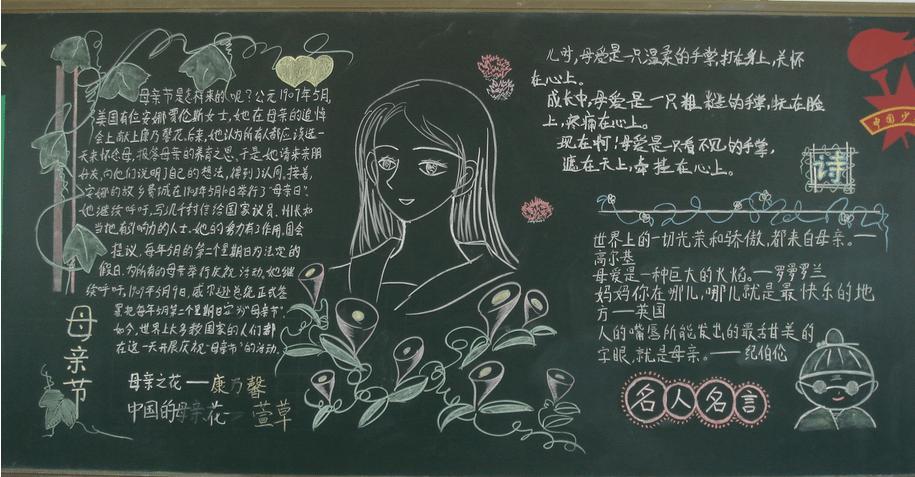 母亲节是怎样来的呢？公元1907年5月,
美国有位安娜贾伦斯女士,她在母亲的追悼
会上献上康乃馨花.后来,她认为所有人都应该这一
天来怀念母,报答母亲的养育之恩.于是她请来亲朋
好友,向他们说明了自己的想法,得到了认同.接着,
安娜的故乡费城在1908年5月10日举行了“母亲日”.
她继续呼吁,写几千封信给国家议员、州长和
当地有影响力的人士.她的努力有了作用,国会
提议,每年5月的第二个星期日为法定的
假日,为所有的母亲举行庆祝活动.她继
续呼吁,年5月9日,威尔逊总统正式签
署把每年5月第二个星期日定为“母亲节”.
如今,世界上大多数国家的人们都
在这一天开展庆祝“母亲节”的活动.
母亲节
母亲之花——康乃馨
中国的母亲花—萱草
儿时,母爱是一只温柔的手掌,打在身上,关怀
在心上。
成长中,母爱是一只粗糙的手掌,抚在脸
上,疼痛在心上。
现在啊!母爱是一只看不见的手掌,
遮在天上,牵挂在心上。
诗
中国少
世界上的一切光荣和骄傲,都来自母亲。—
高尔基
母爱是一种巨大的火焰。—罗曼罗兰
妈妈你在哪儿,哪儿就是最快乐的地
方—英国
人的嘴唇所能发出的最甜美的
字眼,就是母亲。——纪伯伦
名人名言